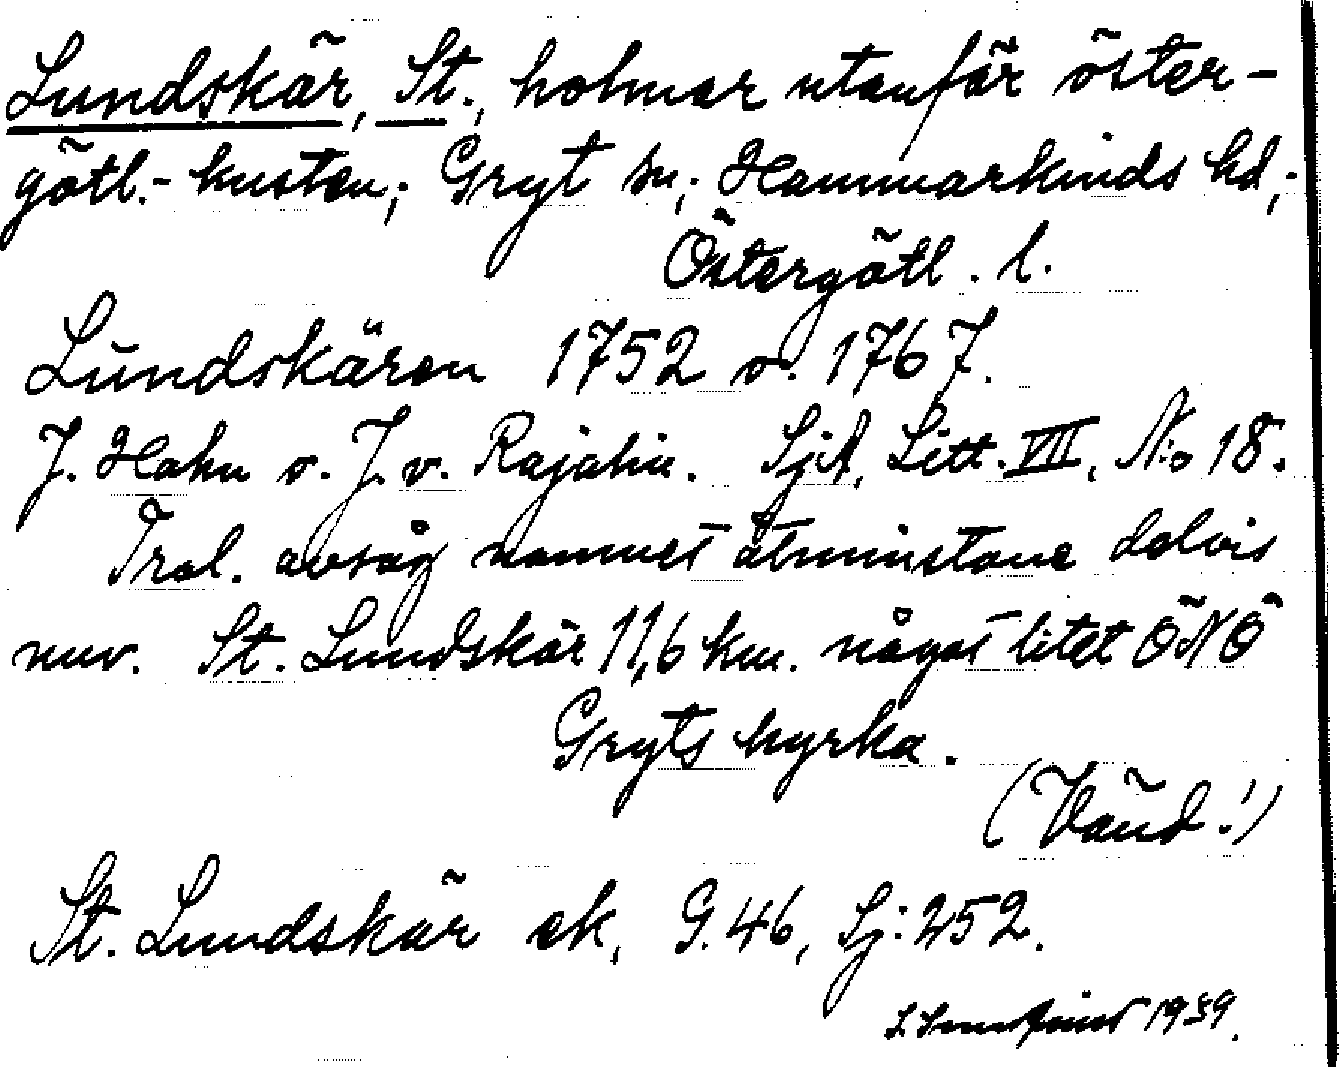 Lundskär, St., holmar utanför öster-
götl.-kusten; Gryt sn; Hammarkinds hd;
Östergötl. l.
Lundskären 1752 o. 1767.
J. Hahn o. J. v. Rajalin. Sjö, Litt. VII, No 18.
Trol. avsåg namnet åtminstone delvis
nuv. St. Lundskär 11,6 km. något litet ÖNÖ
Gryts kyrka.
(Vänd!)
St. Lundskär ek, G. 46, Sj: 252.
1939.